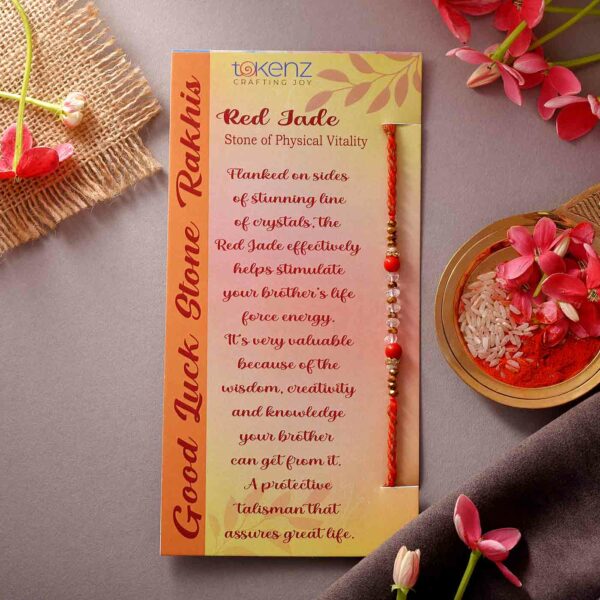 tokenz
CRAFTING JOY
Good Luck Stone Rakhis
Red Jade
Stone of Physical Vitality
Flanked on sides
of stunning line
of crystals, the
Red Jade effectively
helps stimulate
your brother's life
force energy.
It's very valuable
because of the
wisdom, creativity
and knowledge
your brother
can get from it.
A protective
talisman that
assures great life.